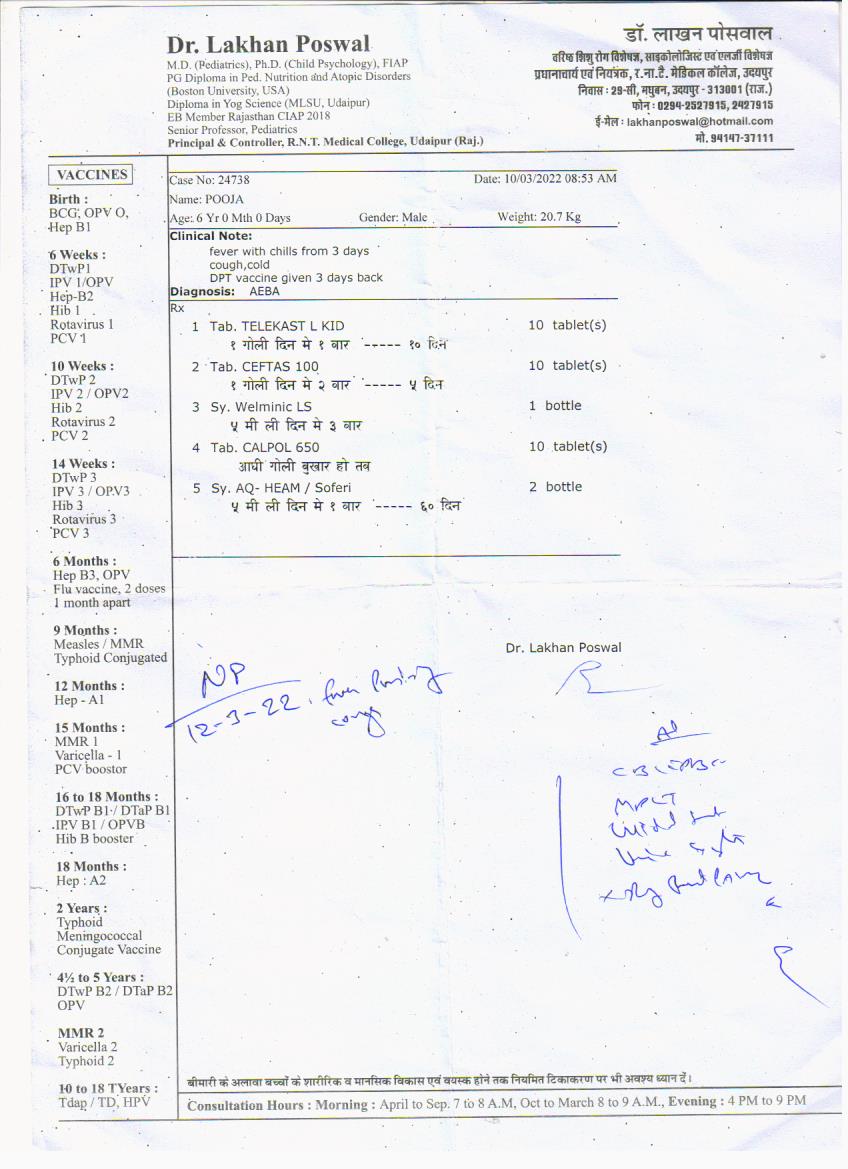 Dr. Lakhan Poswal
M.D. (Pediatrics), Ph.D. (Child Psychology), FIAP
PG Diploma in Ped. Nutrition and Atopic Disorders
(Boston University, USA)
Diploma in Yog Science (MLSU, Udaipur)
EB Member Rajasthan CIAP 2018
Senior Professor, Pediatrics
Principal & Controller, R.N.T. Medical College, Udaipur (Raj.)
डॉ. लाखन पोसवाल
वरिष्ठ शिशु रोग विशेषज्ञ, साइकोलोजिस्ट एवं एलर्जी विशेषज्ञ
प्रधानाचार्य एवं नियंत्रक, र.ना.टै. मेडिकल कॉलेज, उदयपुर
निवास : 29-सी, मधुबन, उदयपुर - 313001 (राज.)
फोन : 0294-2527915, 2427915
ई-मेल : lakhanposwal@hotmail.com
मो. 94147-37111
VACCINES
Birth :
BCG, OPV O,
Hep B1
6 Weeks :
DTwP1
IPV 1/OPV
Hep-B2
Hib 1
Rotavirus 1
PCV 1
10 Weeks :
DTwP 2
IPV 2 / OPV2
Hib 2
Rotavirus 2
PCV 2
14 Weeks :
DTwP 3
IPV 3 / OPV3
Hib 3
Rotavirus 3
PCV 3
6 Months :
Hep B3, OPV
Flu vaccine, 2 doses
1 month apart
9 Months :
Measles / MMR
Typhoid Conjugated
12 Months :
Hep - A1
15 Months :
MMR 1
Varicella - 1
PCV boostor
16 to 18 Months :
DTwP B1 / DTaP B1
IPV B1 / OPVB
Hib B booster
18 Months :
Hep : A2
2 Years :
Typhoid
Meningococcal
Conjugate Vaccine
4½ to 5 Years :
DTwP B2 / DTaP B2
OPV
MMR 2
Varicella 2
Typhoid 2
10 to 18 TYears :
Tdap / TD, HPV
Case No: 24738 Date: 10/03/2022 08:53 AM
Name: POOJA
Age: 6 Yr 0 Mth 0 Days Gender: Male Weight: 20.7 Kg
Clinical Note:
fever with chills from 3 days
cough,cold
DPT vaccine given 3 days back
Diagnosis: AEBA
Rx
1 Tab. TELEKAST L KID 10 tablet(s)
१ गोली दिन मे १ वार ----- १० दिन
2 Tab. CEFTAS 100 10 tablet(s)
१ गोली दिन मे २ वार ----- ५ दिन
3 Sy. Welminic LS 1 bottle
५ मी ली दिन मे ३ वार
4 Tab. CALPOL 650 10 tablet(s)
आधी गोली बुखार हो तब
5 Sy. AQ- HEAM / Soferi 2 bottle
५ मी ली दिन मे १ वार ----- ६० दिन
Dr. Lakhan Poswal
NP
12-3-22
बीमारी के अलावा बच्चों के शारीरिक व मानसिक विकास एवं वयस्क होने तक नियमित टिकाकरण पर भी अवश्य ध्यान दें।
Consultation Hours : Morning : April to Sep. 7 to 8 A.M, Oct to March 8 to 9 A.M., Evening : 4 PM to 9 PM